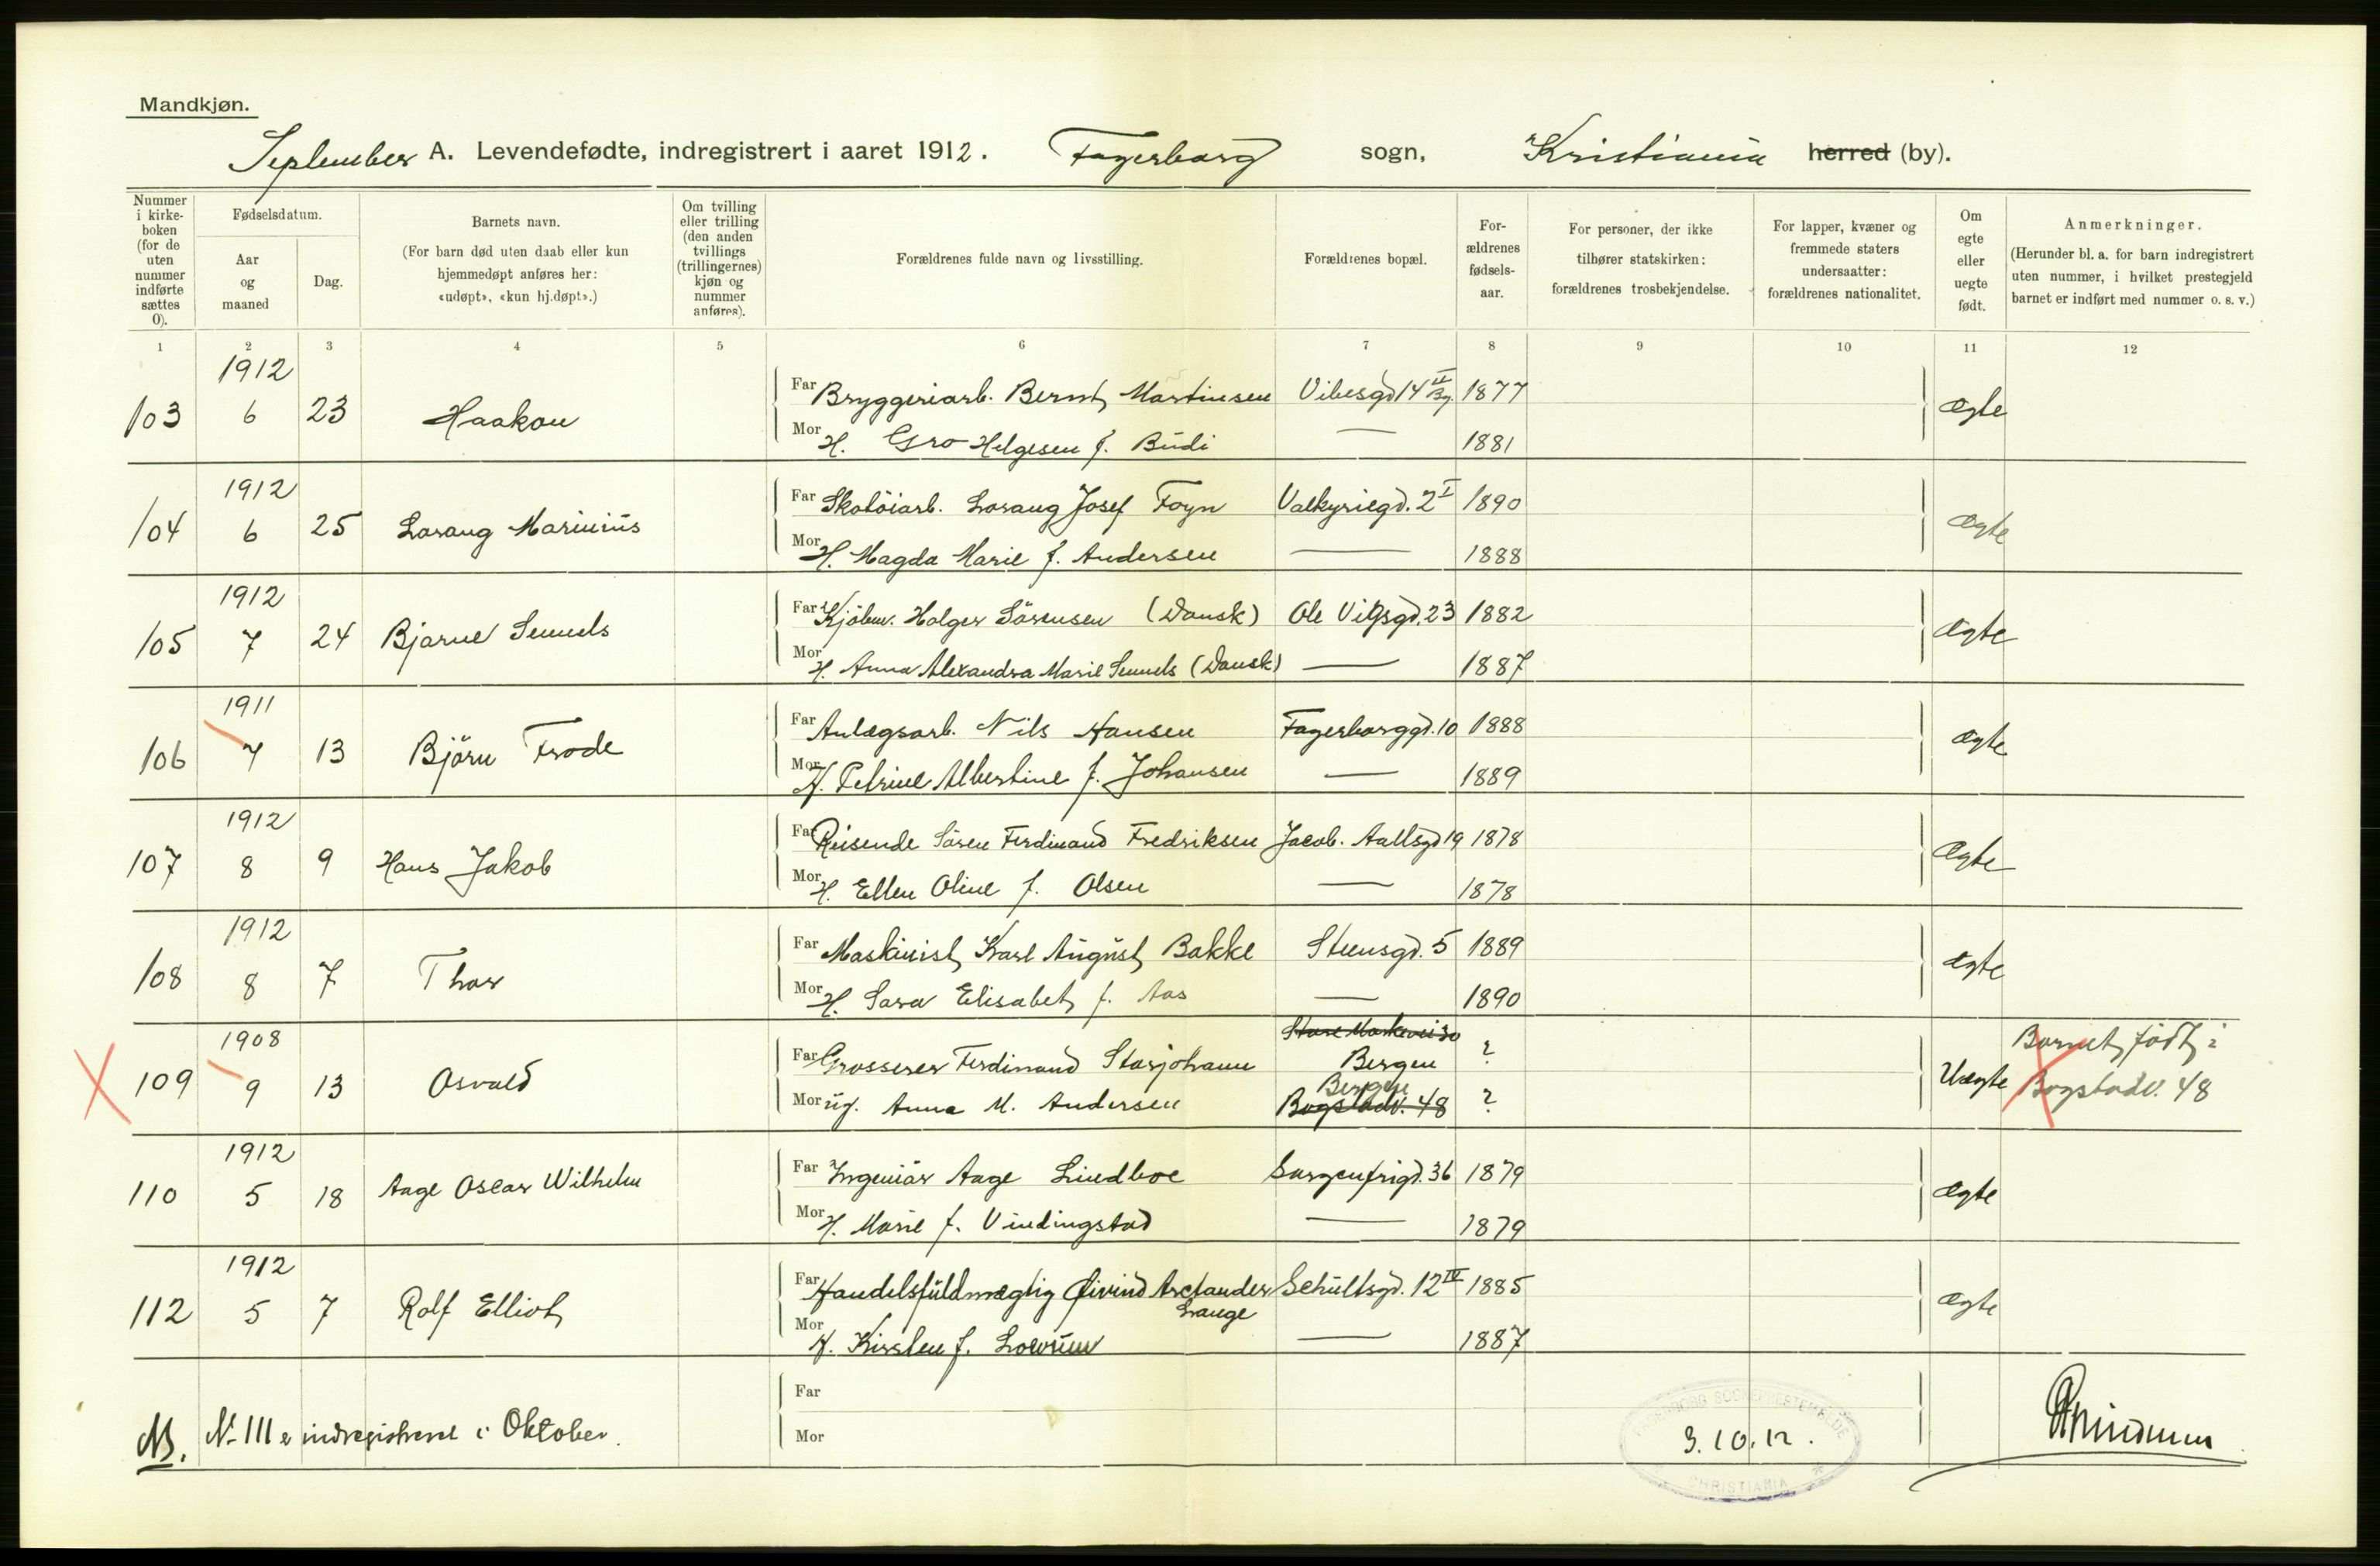 Mandkjøn.
September A. Levendefødte, indregistrert i aaret 1912. Fagerborg sogn, Kristiania herred (by).
Nummer i kirke-boken (for de uten nummer indførte sættes 0).
Fødselsdatum.
Aar og maaned
Dag.
Barnets navn.
(For barn død uten daab eller kun hjemmedøpt anføres her: «udøpt», «kun hj.døpt».)
Om tvilling eller trilling (den anden tvillings (trillingernes) kjøn og nummer anføres).
Forældrenes fulde navn og livsstilling.
Forældrenes bopæl.
For-ældrenes fødsels-aar.
For personer, der ikke tilhører statskirken: forældrenes trosbekjendelse.
For lapper, kvæner og fremmede staters undersaatter: forældrenes nationalitet.
Om egte eller uegte født.
Anmerkninger.
(Herunder bl. a. for barn indregistrert uten nummer, i hvilket prestegjeld barnet er indført med nummer o. s. v.)
1 2 3 4 5 6 7 8 9 10 11 12
1912
103 6 23 Haakon Far Bryggeriarb. Bernt Martinsen Vibesgd 14 II By. 1877 Ægte
Mor H. Gro Helgesen f. Budi — 1881
1912
104 6 25 Lorang Marinius Far Skotöiarb. Lorang Josef Foyn Valkyriegd. 2 I 1890 Ægte
Mor H. Magda Marie f. Andersen — 1888
1912
105 7 24 Bjarne Semels Far Kjöbm. Holger Sörensen (Dansk) Ole Vigsgd. 23 1882 Ægte
Mor H. Anna Alexandra Marie Semels (Dansk) — 1887
1911
106 7 13 Björn Frode Far Anlægsarb. Nils Hansen Fagerborggd. 10 1888 Ægte
Mor H. Petrine Albertine f. Johansen — 1889
1912
107 8 9 Hans Jakob Far Reisende Sören Ferdinand Fredriksen Jacob. Aallsgd 19 1878 Ægte
Mor H. Ellen Oline f. Olsen — 1878
1912
108 8 7 Thor Far Maskinist Karl August Bakke Steensgd. 5 1889 Ægte
Mor H. Sara Elisabet f. Aas — 1890
1908 Store Markevei 30
109 9 13 Osvald Far Grosserer Ferdinand Storjohann Bergen ? Uægte Barnet födt i
Bergen
Mor ug. Anna M. Andersen Bogstadv. 48 ? Bogstadv. 48
1912
110 5 18 Aage Oscar Wilhelm Far Ingeniör Aage Lindboe Sorgenfrigd. 36 1879 Ægte
Mor H. Marie f. Vindingstad — 1879
1912
112 5 7 Rolf Elliot Far Handelsfuldmægtig Øivind Arctander Schultsgd. 12 IV 1885 Ægte
Lange
Mor H. Kirsten f. — 1887
Far
NB. Nr 111 er indregistreret i Oktober.
Mor
FAGERBORG SOGNEPRESTEMBEDE
3.10.12.
CHRISTIANIA